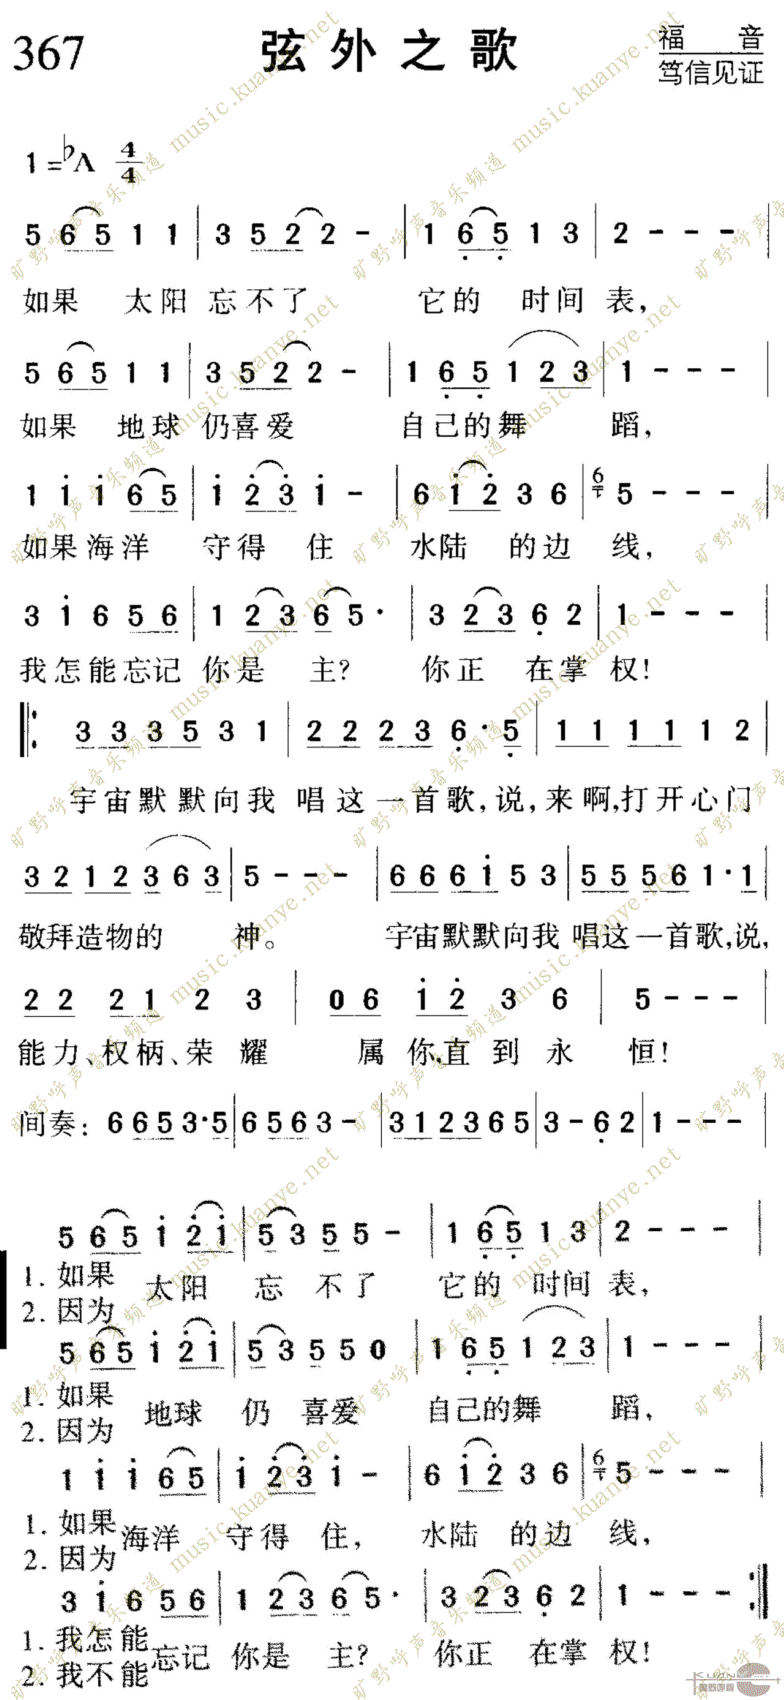 367 弦外之歌 福音
笃信见证
1=♭A 4/4
5 6 5 1 1 | 3 5 2 2 - | 1 6 5 1 3 | 2 - - - |
如果 太阳 忘不了 它的 时间 表，
5 6 5 1 1 | 3 5 2 2 - | 1 6 5 1 2 3 | 1 - - - |
如果 地球 仍喜爱 自己的舞 蹈，
1 i i 6 5 | i 2 3 i - | 6 i 2 3 6 | 6 5 - - - |
如果海洋 守得 住 水陆 的边 线，
3 i 6 5 6 | 1 2 3 6 5 · | 3 2 3 6 2 | 1 - - - |
我怎能忘记 你是 主？ 你正 在掌 权！
‖: 3 3 3 5 3 1 | 2 2 2 3 6 · 5 | 1 1 1 1 1 2
宇宙默默向我 唱这一首歌，说，来啊，打开心门
3 2 1 2 3 6 3 | 5 - - - | 6 6 6 i 5 3 | 5 5 5 6 1 · 1 |
敬拜造物的 神。 宇宙默默向我 唱这一首歌，说，
2 2 2 1 2 3 | 0 6 i 2 3 6 | 5 - - - |
能力、权柄、荣耀 属你，直到永 恒！
间奏：6 6 5 3 · 5 | 6 5 6 3 - | 3 1 2 3 6 5 | 3 - 6 2 | 1 - - - |
5 6 5 i 2 i | 5 3 5 5 - | 1 6 5 1 3 | 2 - - - |
1. 如果 太阳 忘 不了 它的 时间 表，
2. 因为
5 6 5 i 2 i | 5 3 5 5 0 | 1 6 5 1 2 3 | 1 - - - |
1. 如果 地球 仍 喜爱 自己的舞 蹈，
2. 因为
1 i i 6 5 | i 2 3 i - | 6 i 2 3 6 | 6 5 - - - |
1. 如果 海洋 守得 住， 水陆 的边 线，
2. 因为
3 i 6 5 6 | 1 2 3 6 5 · | 3 2 3 6 2 | 1 - - - :‖
1. 我怎能 忘记 你是 主？ 你正 在掌 权！
2. 我不能
旷野呼声音乐频道 music.kuanye.net